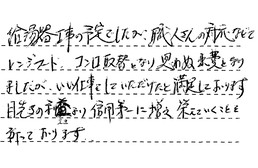 給湯器工事の予定でしたが、職人さんの再示などで
レンジフード、コンロ取替となり思わぬ出費となり
ましたが、いい仕事をしていただけたと満足しております
目先の利益より信用第一に増々栄えていくことを
祈っております。